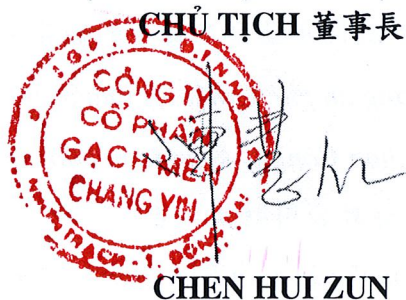 CHỦ TỊCH 董事長
CÔNG TY
CỔ PHẦN
GẠCH MEN
CHANG YIH
CHEN HUI ZUN